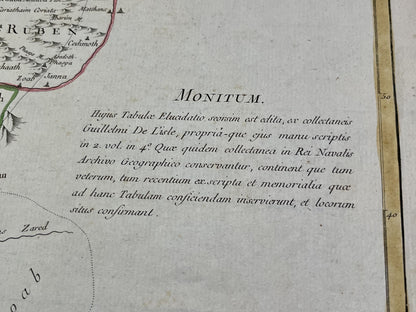 Coriathaim Coriate
Mathana
RUBEN
Cedimoth
Zoab
Janna
MONITUM.
Hujus Tabulæ Elucidatio seorsim est edita, ex collectaneis
Guillelmi De L'isle, propriâ-que ejus manu scriptis
in 2. vol. in 4.º Quæ quidem collectanea in Rei Navalis
Archivo Geographico conservantur, continent que tum
veterum, tum recentium exscripta et memorialia quæ
ad hanc Tabulam conficiendam inservierunt, et locorum
situs confirmant.
Zared
oab
50
40